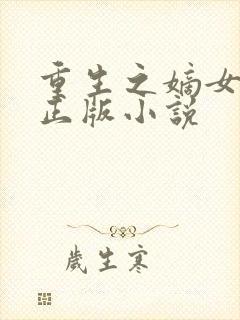 重生之嫡女
正版小說
歲生寒